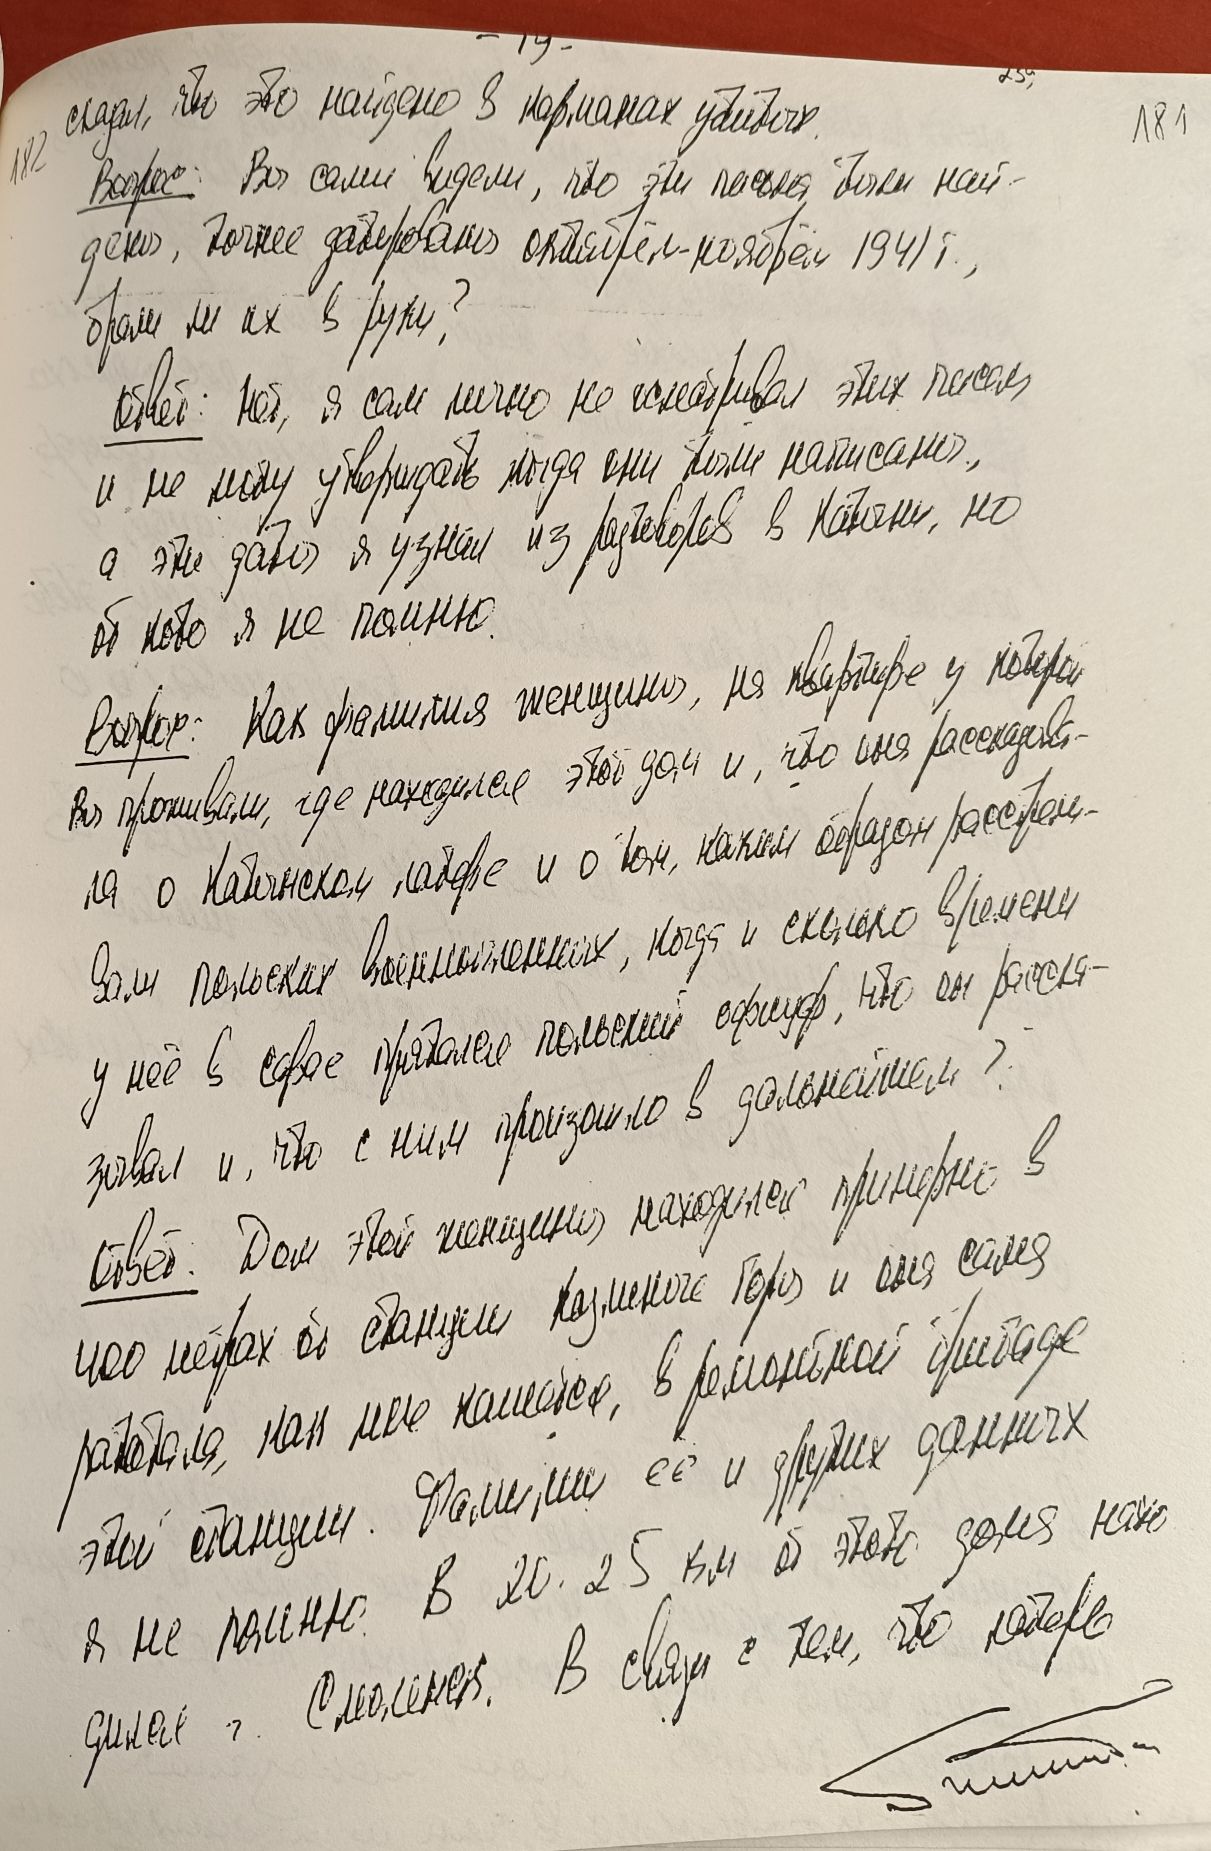 - 19 -
181
182
сказал, что это найдено в карманах убитых.
Вопрос: Вы сами видели, что эти письма были най-
дены, точнее датированы октябрём-ноябрём 1941 г.,
брали ли их в руки?
Ответ: Нет, я сам лично не осматривал этих писем
и не могу утверждать когда они были написаны,
а эти даты я узнал из разговоров в Катыни, но
от кого я не помню.
Вопрос: Как фамилия женщины, на квартире у которой
Вы проживали, где находился этот дом и, что она рассказыва-
ла о Катынском лагере и о том, каким образом расстрели-
вали польских военнопленных, когда и сколько времени
у неё в сарае прятался польский офицер, что он расска-
зывал и, что с ним произошло в дальнейшем?
Ответ: Дом этой женщины находился примерно в
400 метрах от станции Козьи Горы и она сама
работала, как мне кажется, в ремонтной бригаде
этой станции. Фамилии её и других данных
я не помню. В 20-25 км от этого дома нахо
дился г. Смоленск. В связи с тем, что лагерь